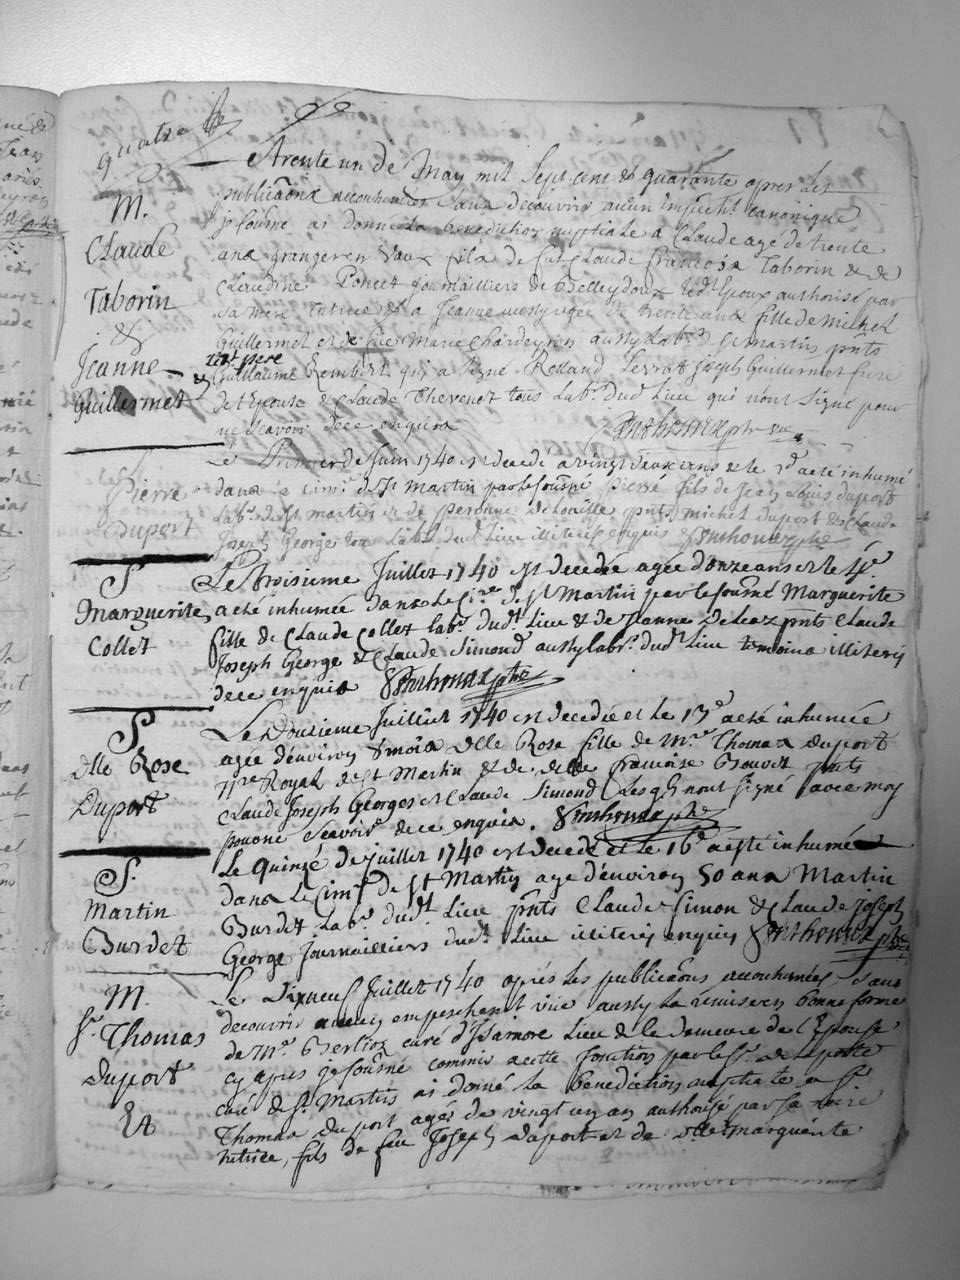 quatre
M.
Claude
Taborin
&
Jeanne
Guillermet
A trente un de May mil Sept cent & quarante apres les
publica͠ons accoutumées sans decouvrir aucun empecht. canonique
je sousne ai donné la benediction nuptiale a Claude agé de trente
ans granger en Vaux fils de fut Claude François Taborin & de
Claudine Poncet journailliers de Belleydoux led.t Epoux authorisé par
sa mere tutrice & a Jeanne agée de trente ans fille de Michel
Guillermet et de Marie Chardeyron aussy lab.rs St Martin pnts
& Guillaume Rembert qui a signé Rolland Joseph Guillermet frere
de l'Epouse & Claude Thevenot tous lab.rs dud Lieu qui n'ont signé pour
ne scavoir de ce enquis
Pierre
Duport
Le premier de Juin 1740 est decedé a vingt deux ans & le a eté inhumé
dans le cim.re de St Martin par le sousne Pierre fils de Jean Louis duport
lab.r de St martin et de peronne pnts michel duport & Claude
Joseph George tous lab.rs dud Lieu illiterés enquis
S
Marguerite
Collet
Le troisieme Juillet 1740 est decedée agée d'onze ans et le 4e
a eté inhumée dans le Ci.re de St Martin par le sousné Marguerite
fille de Claude Collet lab.r dud.t Lieu & de Jeanne pnts Claude
Joseph George & Claude Simond aussy lab.rs dud.t Lieu temoins illiterés
de ce enquis
S
Dlle Rose
Duport
Le Douzieme Juillet 1740 est decedée et le 13e a eté inhumée
agée d'environ 8 mois Dlle Rose fille de M.re Thomas duport
Royal de St Martin & de dlle françoise Bouvet pnts
Claude Joseph Georges et Claude Simond Lesq.ls n'ont signé avec moy
pour ne scavoir de ce enquis.
S.
Martin
Burdet
Le quinze de juillet 1740 est decedé et le 16e a esté inhumé
dans le Cim.re de St Martin agé d'environ 50 ans Martin
Burdet lab.r dud.t Lieu pnts Claude Simon & Claude joseph
George Journailliers dud.t Lieu illiterés enquis
M.
S.r Thomas
duport
Et
Le Dixneuf Juillet 1740 après les publica͠ons accoutumées sans
decouvrir aucun empeschement vüe aussy la remise en bonne forme
de M.re Berlioz curé d'Isarnore Lieu & le demeure de l'Epouse
cy apres je sousne commis a cette fonction par le S.r
curé de St Martin ai donné la benediction nuptiale a S.r
Thomas duport agé de vingt un an authorisé par sa mere
tutrice, fils de feu Joseph duport et de dlle marguerite